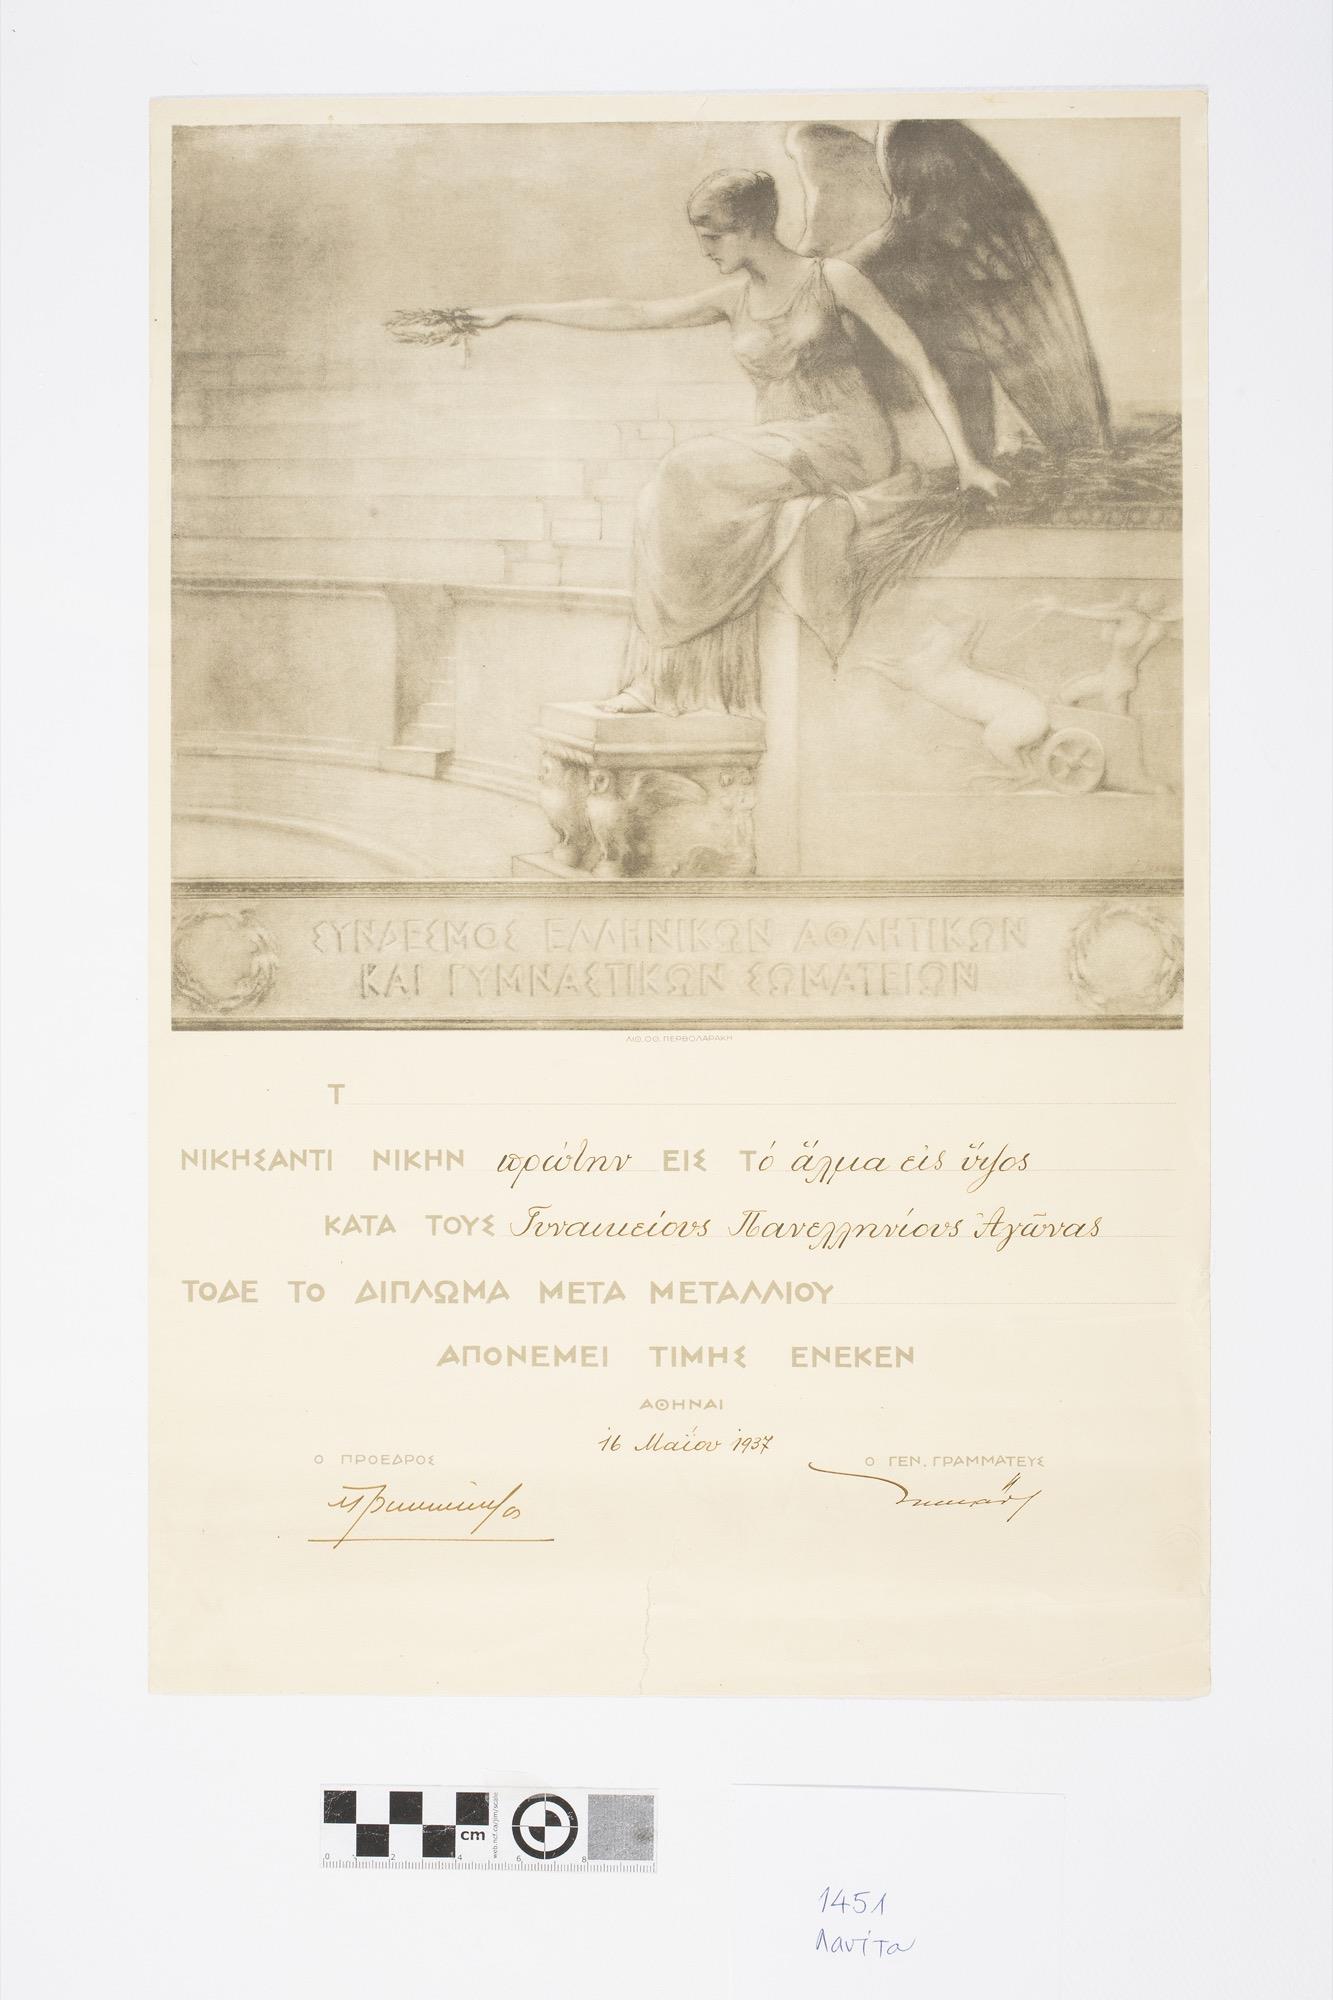 ΣΥΝΔΕΣΜΟΣ ΕΛΛΗΝΙΚΩΝ ΑΘΛΗΤΙΚΩΝ
ΚΑΙ ΓΥΜΝΑΣΤΙΚΩΝ ΣΩΜΑΤΕΙΩΝ
ΛΙΘ. ΟΘ. ΠΕΡΒΟΛΑΡΑΚΗ
Τ
ΝΙΚΗΣΑΝΤΙ ΝΙΚΗΝ πρώτην ΕΙΣ Τό ἅλμα εἰς ὕψος
ΚΑΤΑ ΤΟΥΣ Γυναικείους Πανελληνίους Ἀγῶνας
ΤΟΔΕ ΤΟ ΔΙΠΛΩΜΑ ΜΕΤΑ ΜΕΤΑΛΛΙΟΥ
ΑΠΟΝΕΜΕΙ ΤΙΜΗΣ ΕΝΕΚΕΝ
ΑΘΗΝΑΙ
16 Μαΐου 1937
Ο ΠΡΟΕΔΡΟΣ
Ο ΓΕΝ. ΓΡΑΜΜΑΤΕΥΣ
cm
0 2 4 6 8
1451
Λανίτα